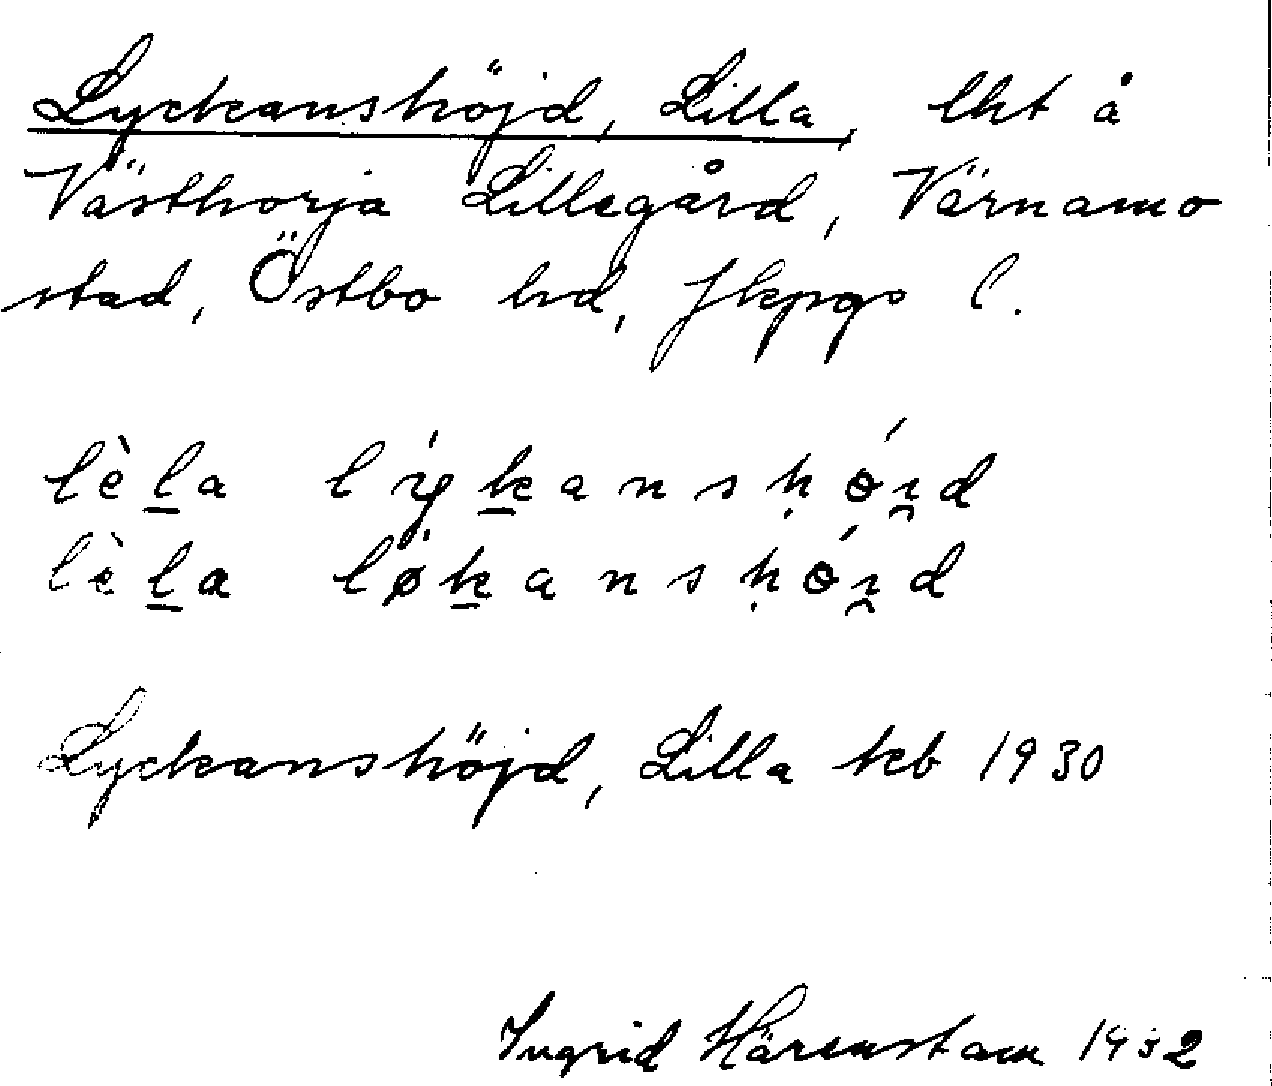 Lyckanshöjd, Lilla, lht å
Västhorja Lillegård, Värnamo
stad, Östbo hd, Jkpgs l.
lèḻa lýḵansḥǿı̯d
lèḻa lǿḵansḥǿı̯d
Lyckanshöjd, Lilla kb 1930
Ingrid Härenstam 1932